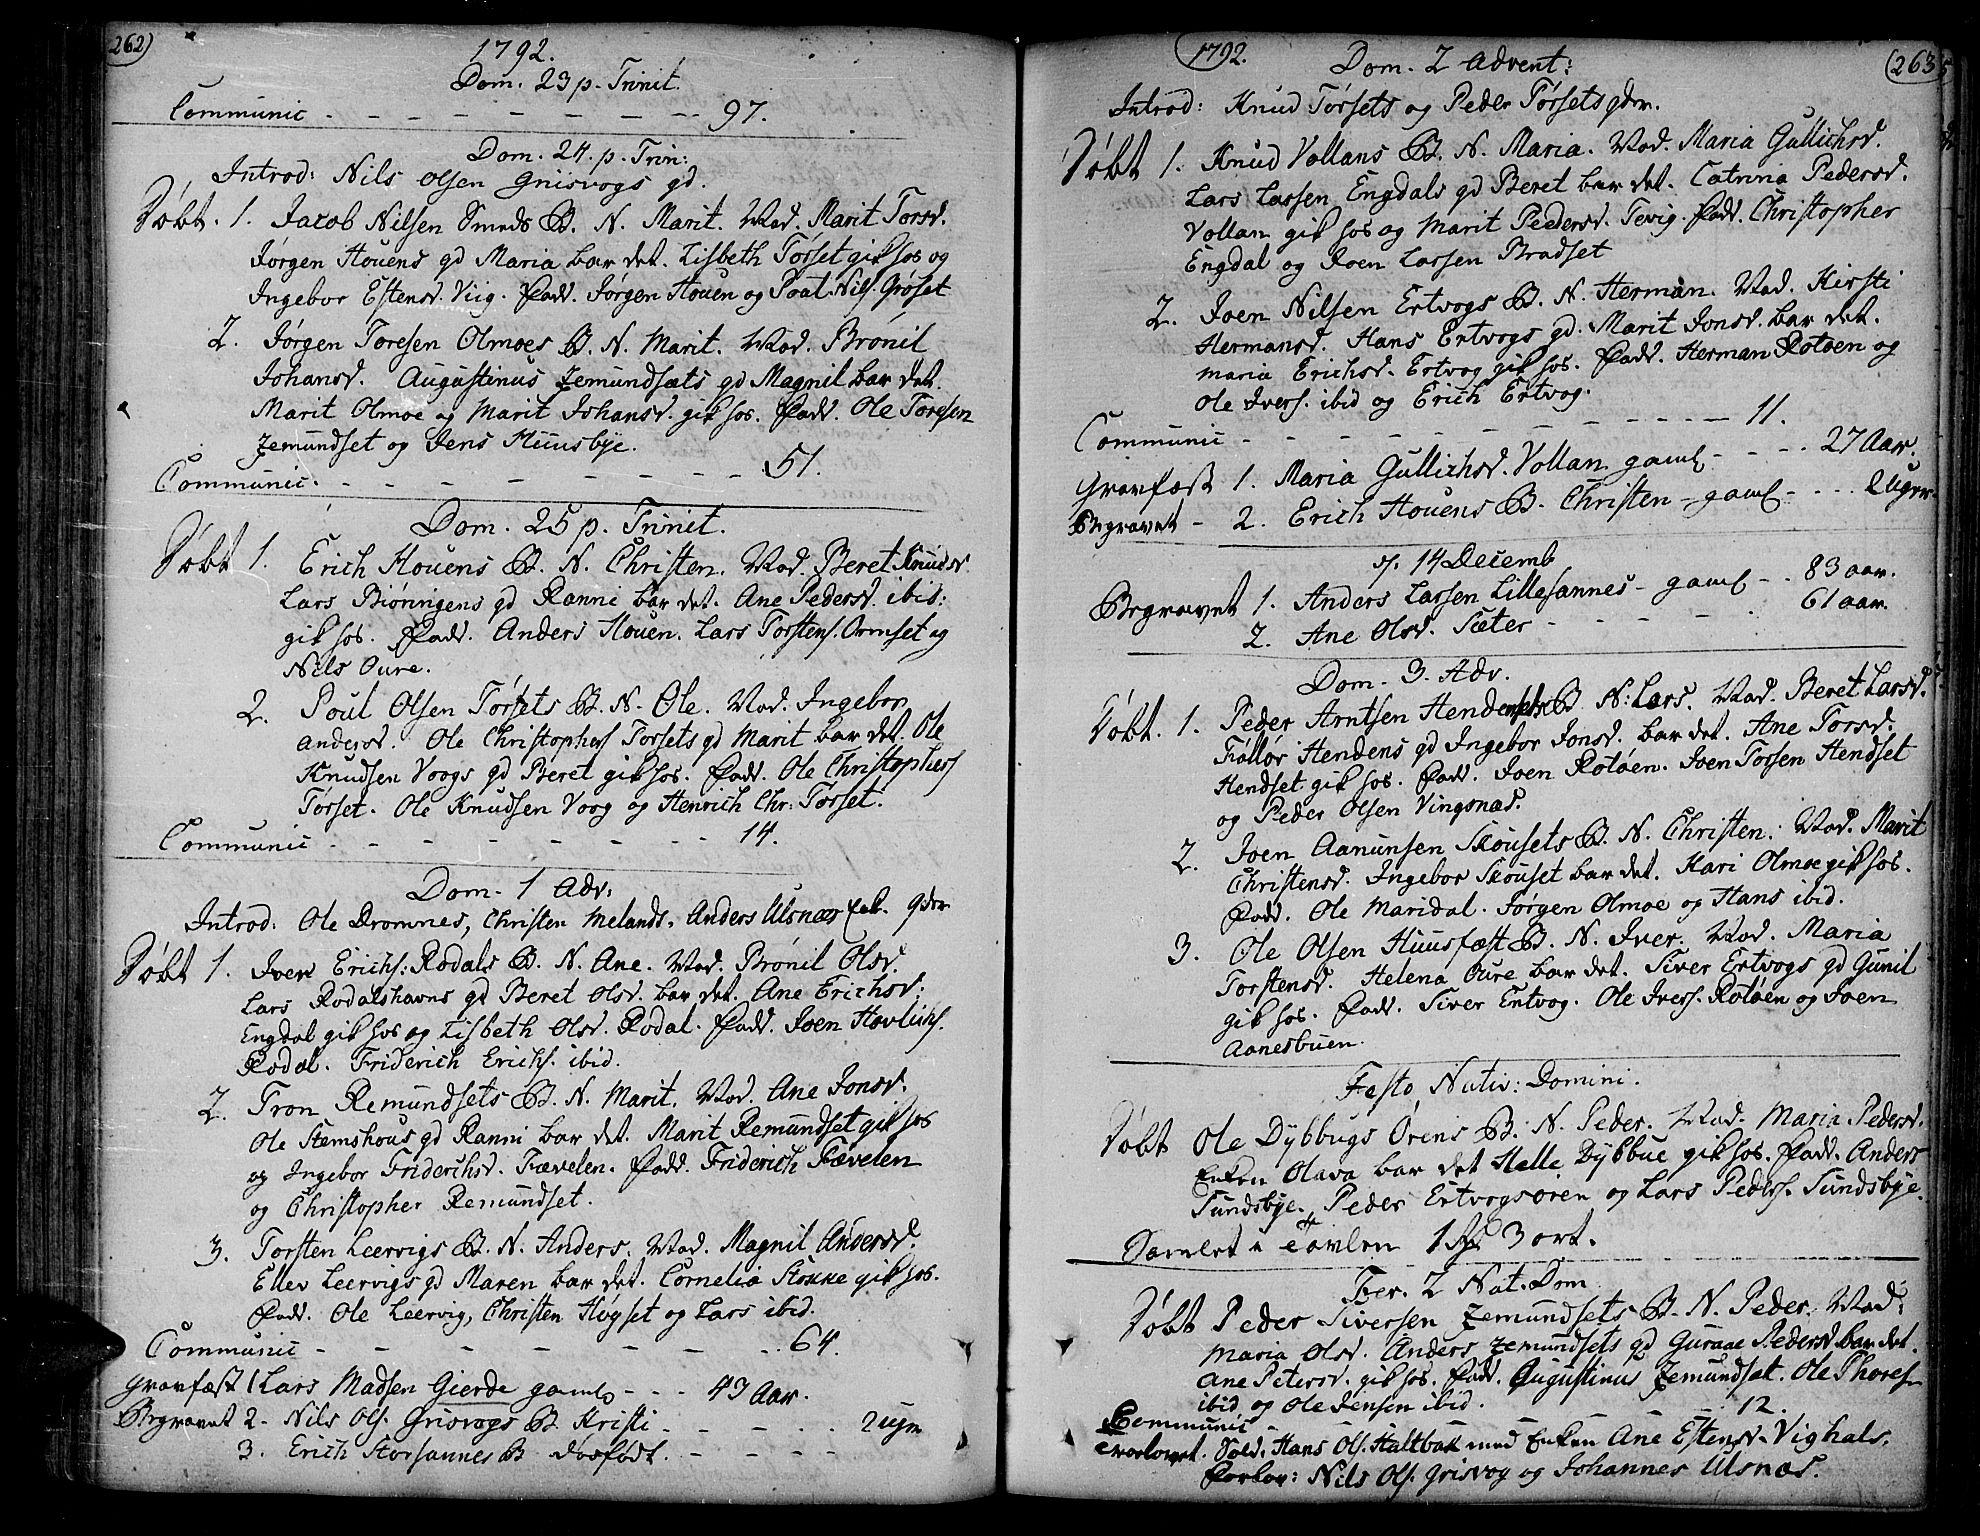 262)
1792.
Dom. 23 p. Trinit.
Communic - - - - - - - - 97.
Dom. 24. p. Trin:
Introd: Nils Olsen Griisvogs gd.
Døbt. 1. Jacob Nilsen Smeds B. N. Marit. Mod. Marit Torsd.
Jørgen Houens gd Maria bar det. Lisbeth Torset gik hos og
Ingebor Estensd. Viig. Fadd. Jørgen Houen og Poul Nils. Grøset
2. Jørgen Toresen Olmoes B. N. Marit. Mod. Brønil
Johansd. Augustinus Zemundsæts gd Magnil bar det.
Marit Olmoe og Marit Johansd. gik hos. Fadd. Ole Toresen
Zemundset og Jens Muusbye.
Communic. - - - - - - - 51.
Dom. 25 p. Trinit.
Døbt 1. Erich Houens B. N. Christen. Mod. Beret Knudsd.
Lars Biørringens gd Ranni bar det. Ane Pedersd. ibid:
gik hos. Fadd. Anders Houen. Lars Torstens. Ormset og
Nils Oure.
2. Poul Olsen Tørsets B. N. Ole. Mod. Ingebor
Andersd. Ole Christophers Torsets gd Marit bar det. Ole
Knudsen Voogs gd Beret gik hos. Fadd. Ole Christophers
Tørset. Ole Knudsen Voog og Henrich Chr: Tørset.
Communic - - - - - - - 14.
Dom. 1 Adv:
Introd: Ole Dromnes, Christen Melands, Anders Ulsnæs gdr
Døbt 1. Iver Erichs: Rodals B. N. Ane. Mod. Brønil Olsd.
Lars Rodalshavns gd Beret Olsd. bar det. Ane Erichsd.
Engdal gik hos og Lisbeth Olsd. Rodal. Fadd. Joen Havlichs.
Rodal. Friderich Erichs. ibid.
2. Tron Remundsets B. N. Marit. Mod. Ane Jonsd.
Ole Stemshous gd Ranni bar det. Marit Remundset gik hos
og Ingebor Friderichsd. Fævelen. Fadd. Friderich Fævelen
og Christopher Remundset.
3. Torsten Leervigs B. N. Anders. Mod. Magnil Andersd.
Ellev Leervigs gd Maren bar det. Cornelia Stokke gik hos.
Fadd. Ole Leervig, Christen Høgset og Lars ibid.
Communic - - - - - - - 64.
Gravfæst 1 Lars Madsen Gierde gaml - - - 43 Aar.
Begravet 2- Nils Ols. Grisvogs B. Kirsti - - - - 2 ugr
3. Erich Storsannes B dødfødt. - - - -
1792. Dom. 2 Advent:
263
Introd: Knud Tørsets og Peder Tørsets gdr.
Døbt 1. Knud Vollans B. N. Maria. Mod. Maria Gullichsd.
Lars Larsen Engdals gd Beret bar det. Catrina Pedersd.
Vollan gik hos og Marit Pedersd. Tevig. Fadd. Christopher
Engdal og Joen Larsen Bradset
2. Joen Nilsen Ertvogs B. N. Herman. Mod. Kirsti
Hermansd. Hans Ertvogs gd. Marit Jonsd. bar det.
Maria Erichsd. Ertvog gik hos. Fadd. Herman Rotøen og
Ole Ivers. ibid og Erich Ertvog.
Communic - - - - - - - - - 11.
Gravfæst 1. Maria Gullichsd. Vollan gaml - - - 27 Aar.
Begravet - 2. Erich Houens B. Christen - gaml - - - 2 Uger
d. 14 Decemb
Begravet 1. Anders Larsen Lillesannes - gaml - - 83 aar.
2. Ane Olsd. Sæter - - - - - 61 aar.
Dom. 3. Adv.
Døbt. 1. Peder Arntsen Hendensets B N: Lars. Mod. Beret Larsd.
Hendens gd Ingebor Jonsd. bar det. Ane Torsd.
Hendset gik hos. Fadd. Joen Rotøen. Joen Torsen Hendset
og Peder Olsen Vingsnæs.
2. Joen Aanunsen Skousets B. N. Christen. Mod. Marit
Christensd. Ingebor Skouset bar det. Kari Olmoe gik hos.
Fadd. Ole Maridal. Jørgen Olmoe og Hans ibid.
3. Ole Olsen Huusfæst B. N. Iver. Mod. Maria
Torstensd. Helena Oure bar det. Siver Ertvogs gd Gunil
gik hos. Fadd. Siver Ertvog. Ole Ivers. Rotøen og Joen
Aanesbuen.
Festo Nativ: Domini.
Døbt Ole Dybbugs Ørens B. N. Peder. Mod. Maria Pedersd.
Enken Olava bar det Helle Dybbue gik hos. Fadd. Anders
Sundsbye. Peder Ertvogsøren og Lars Peders. Sundsbye.
Samlet i tavlen 1 rd 3 ort.
Fer. 2 Nat. Dom
Døbt Peder Siversen Zemundsets B. N. Peder. Mod:
Maria Olsd. Anders Zemundsets gd Guraae Pedersd bar det.
Ane Petersd. gik hos. Fadd. Augustinus Zemundset. Ole Thores.
ibid og Ole Jensen ibid.
Communic - 12.
Trolovet. Sold. Hans Ols. Haltbak med Enken Ane Estensd. Vighals.
Forlov: Nils Ols. Grisvog og Johannes Ulsnæs.